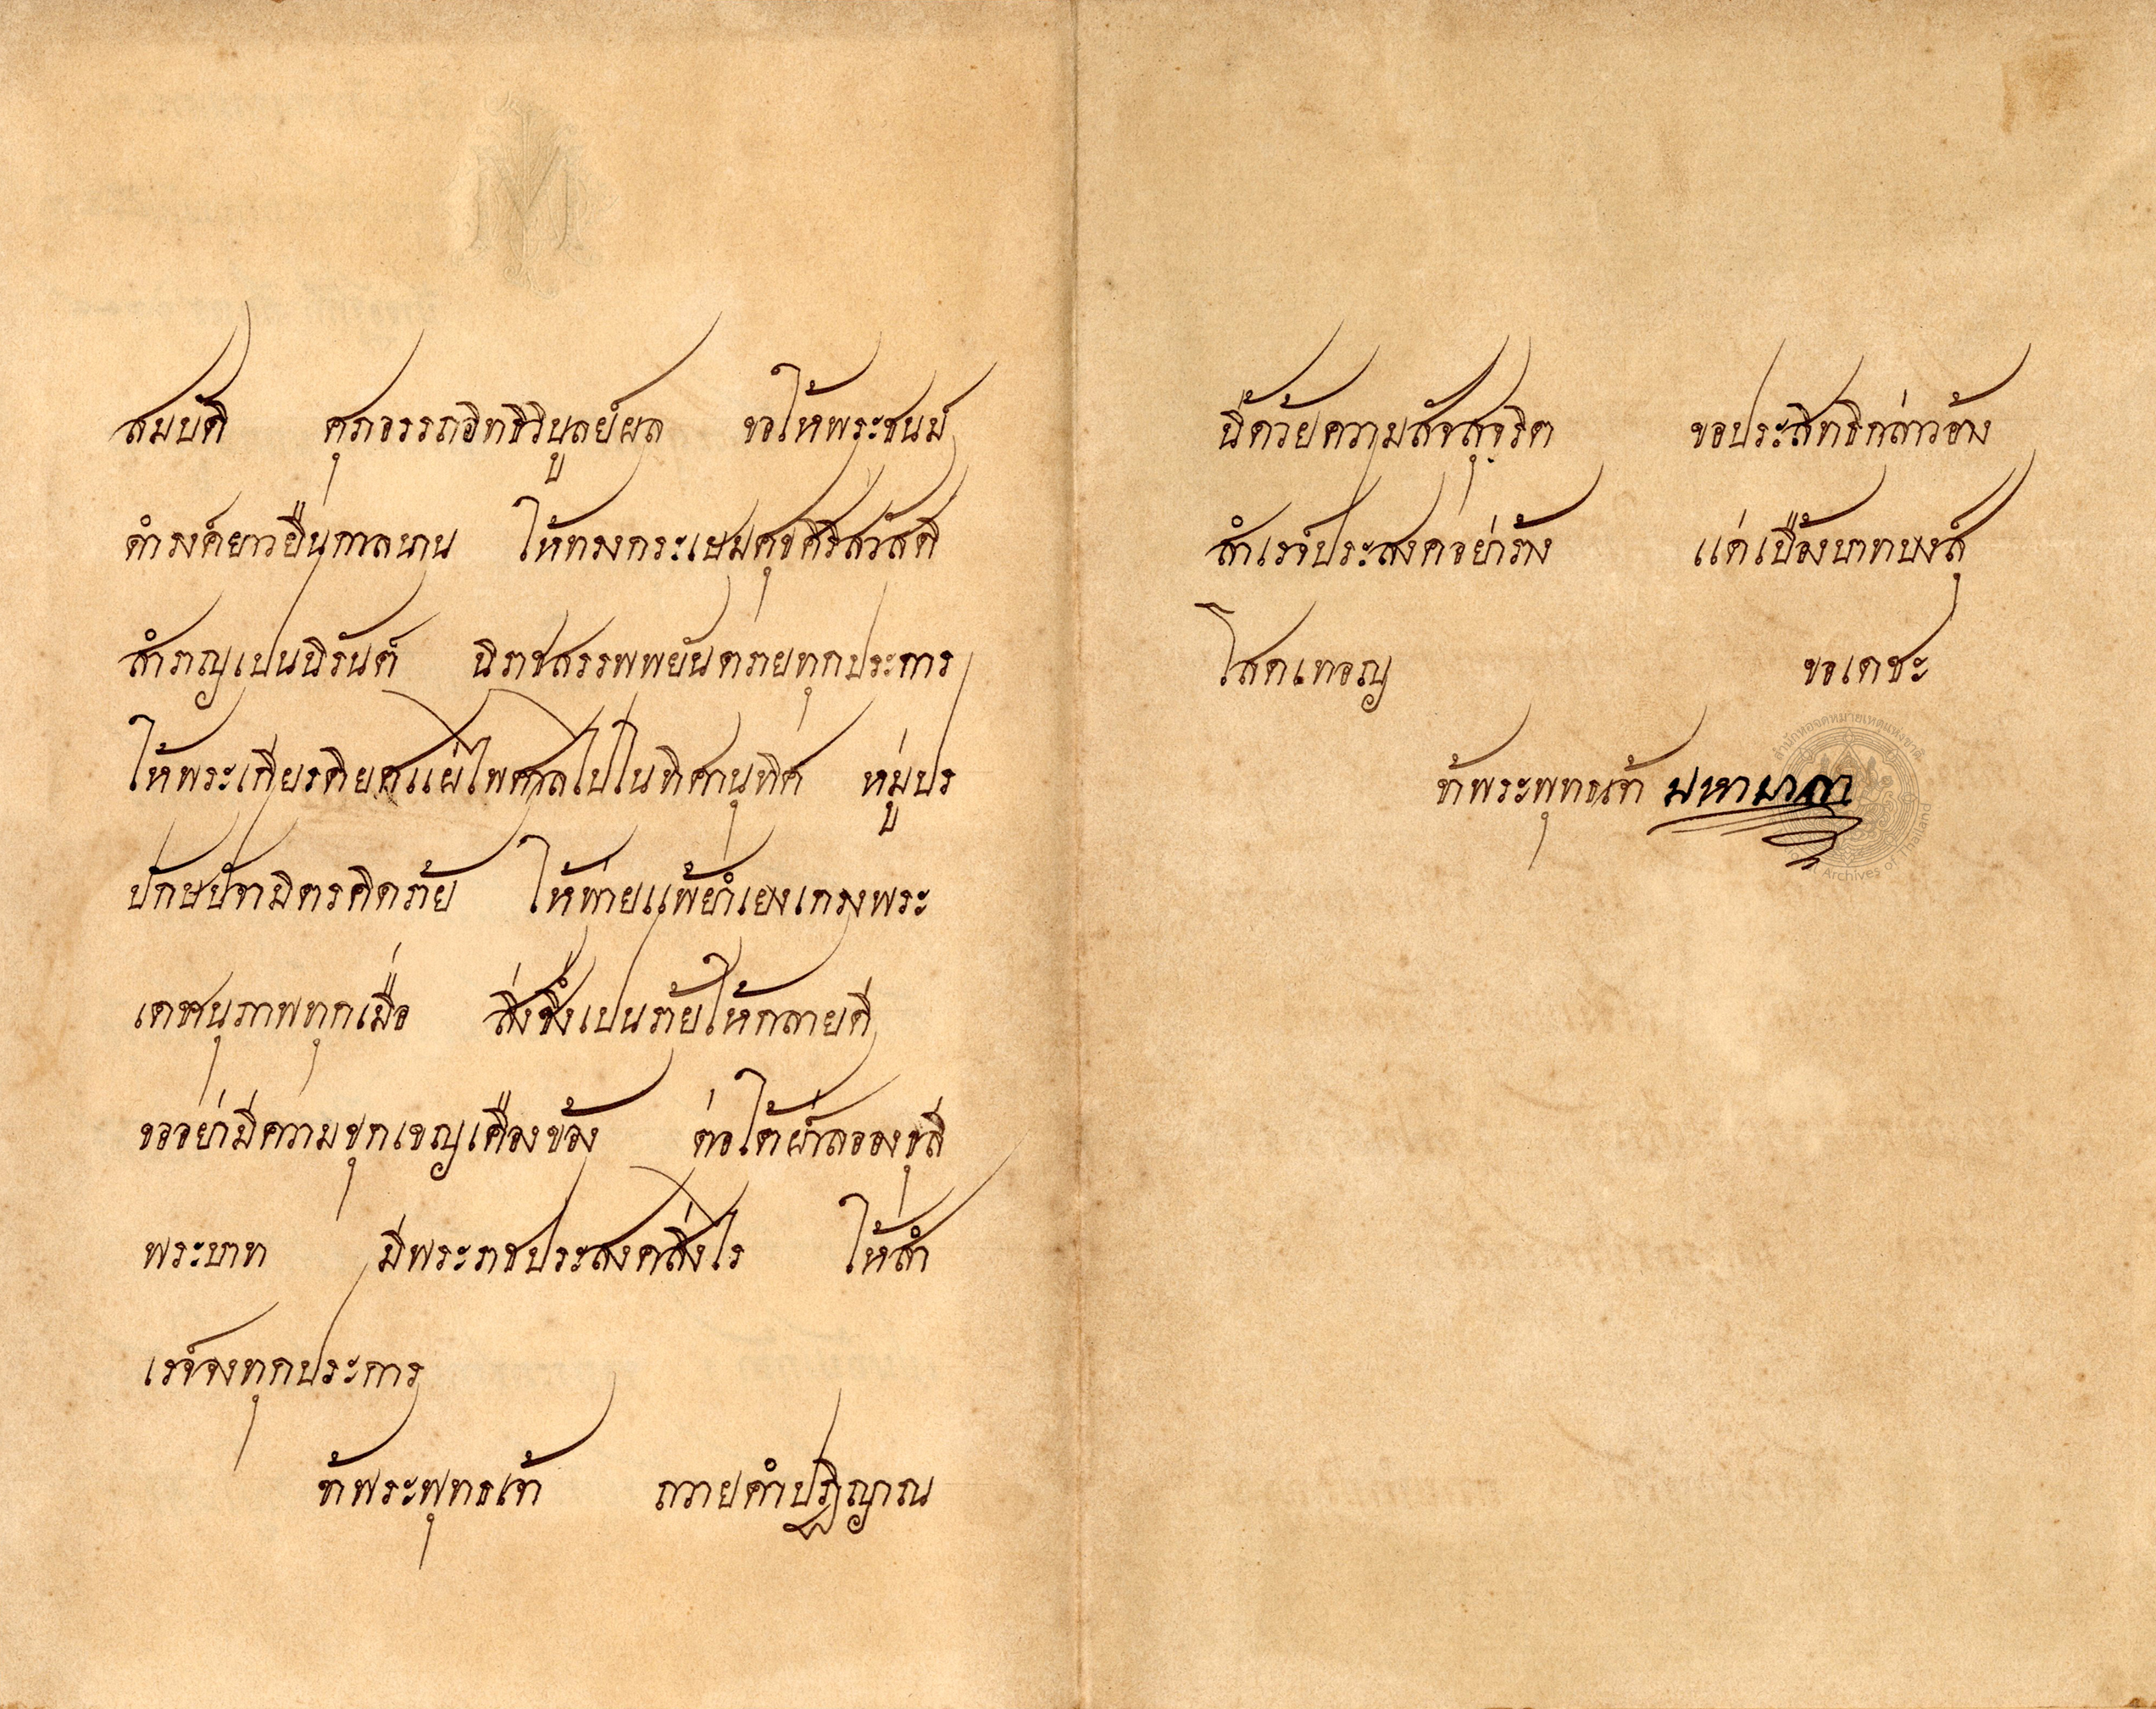 สมบัติ ศุภอรรถอิทธิวิบูลย์ผล ขอให้พระชนม์
ดำรงค์ยาวยืนกาลนาน ให้ทรงกระเษมศุขศิริสวัสดิ
สำราญเปนนิรันต์ นิราชสรรพพยันตรายทุกประการ
ให้พระเกียรติยศแผ่ไพศาลไปในทิศานุทิศ หมู่ปร
ปักษปัจามิตรคิดร้าย ให้พ่ายแพ้ยำเยงเกรงพระ
เดชานุภาพทุกเมื่อ สิ่งซึ่งเปนภัยให้กลายดี
ขออย่ามีความขุกเขญเคืองข้อง ต่อใต้ฝ่าลอองธุลี
พระบาท มีพระราชประสงคสิ่งไร ให้สำ
เรจ์จงทุกประการ
ข้าพระพุทธเจ้า ถวายคำปฏิญาณ
นี้ด้วยความสัจสุจริต ขอประสิทธิกล่าวอ้าง
สำเรจ์ประสงคอย่าร้าง แด่เบื้องบาทบงสุ์
โสดเทอญ ขอเดชะ
ข้าพระพุทธเจ้า มหามาลา
สำนักหอจดหมายเหตุแห่งชาติ
Archives of Thailand